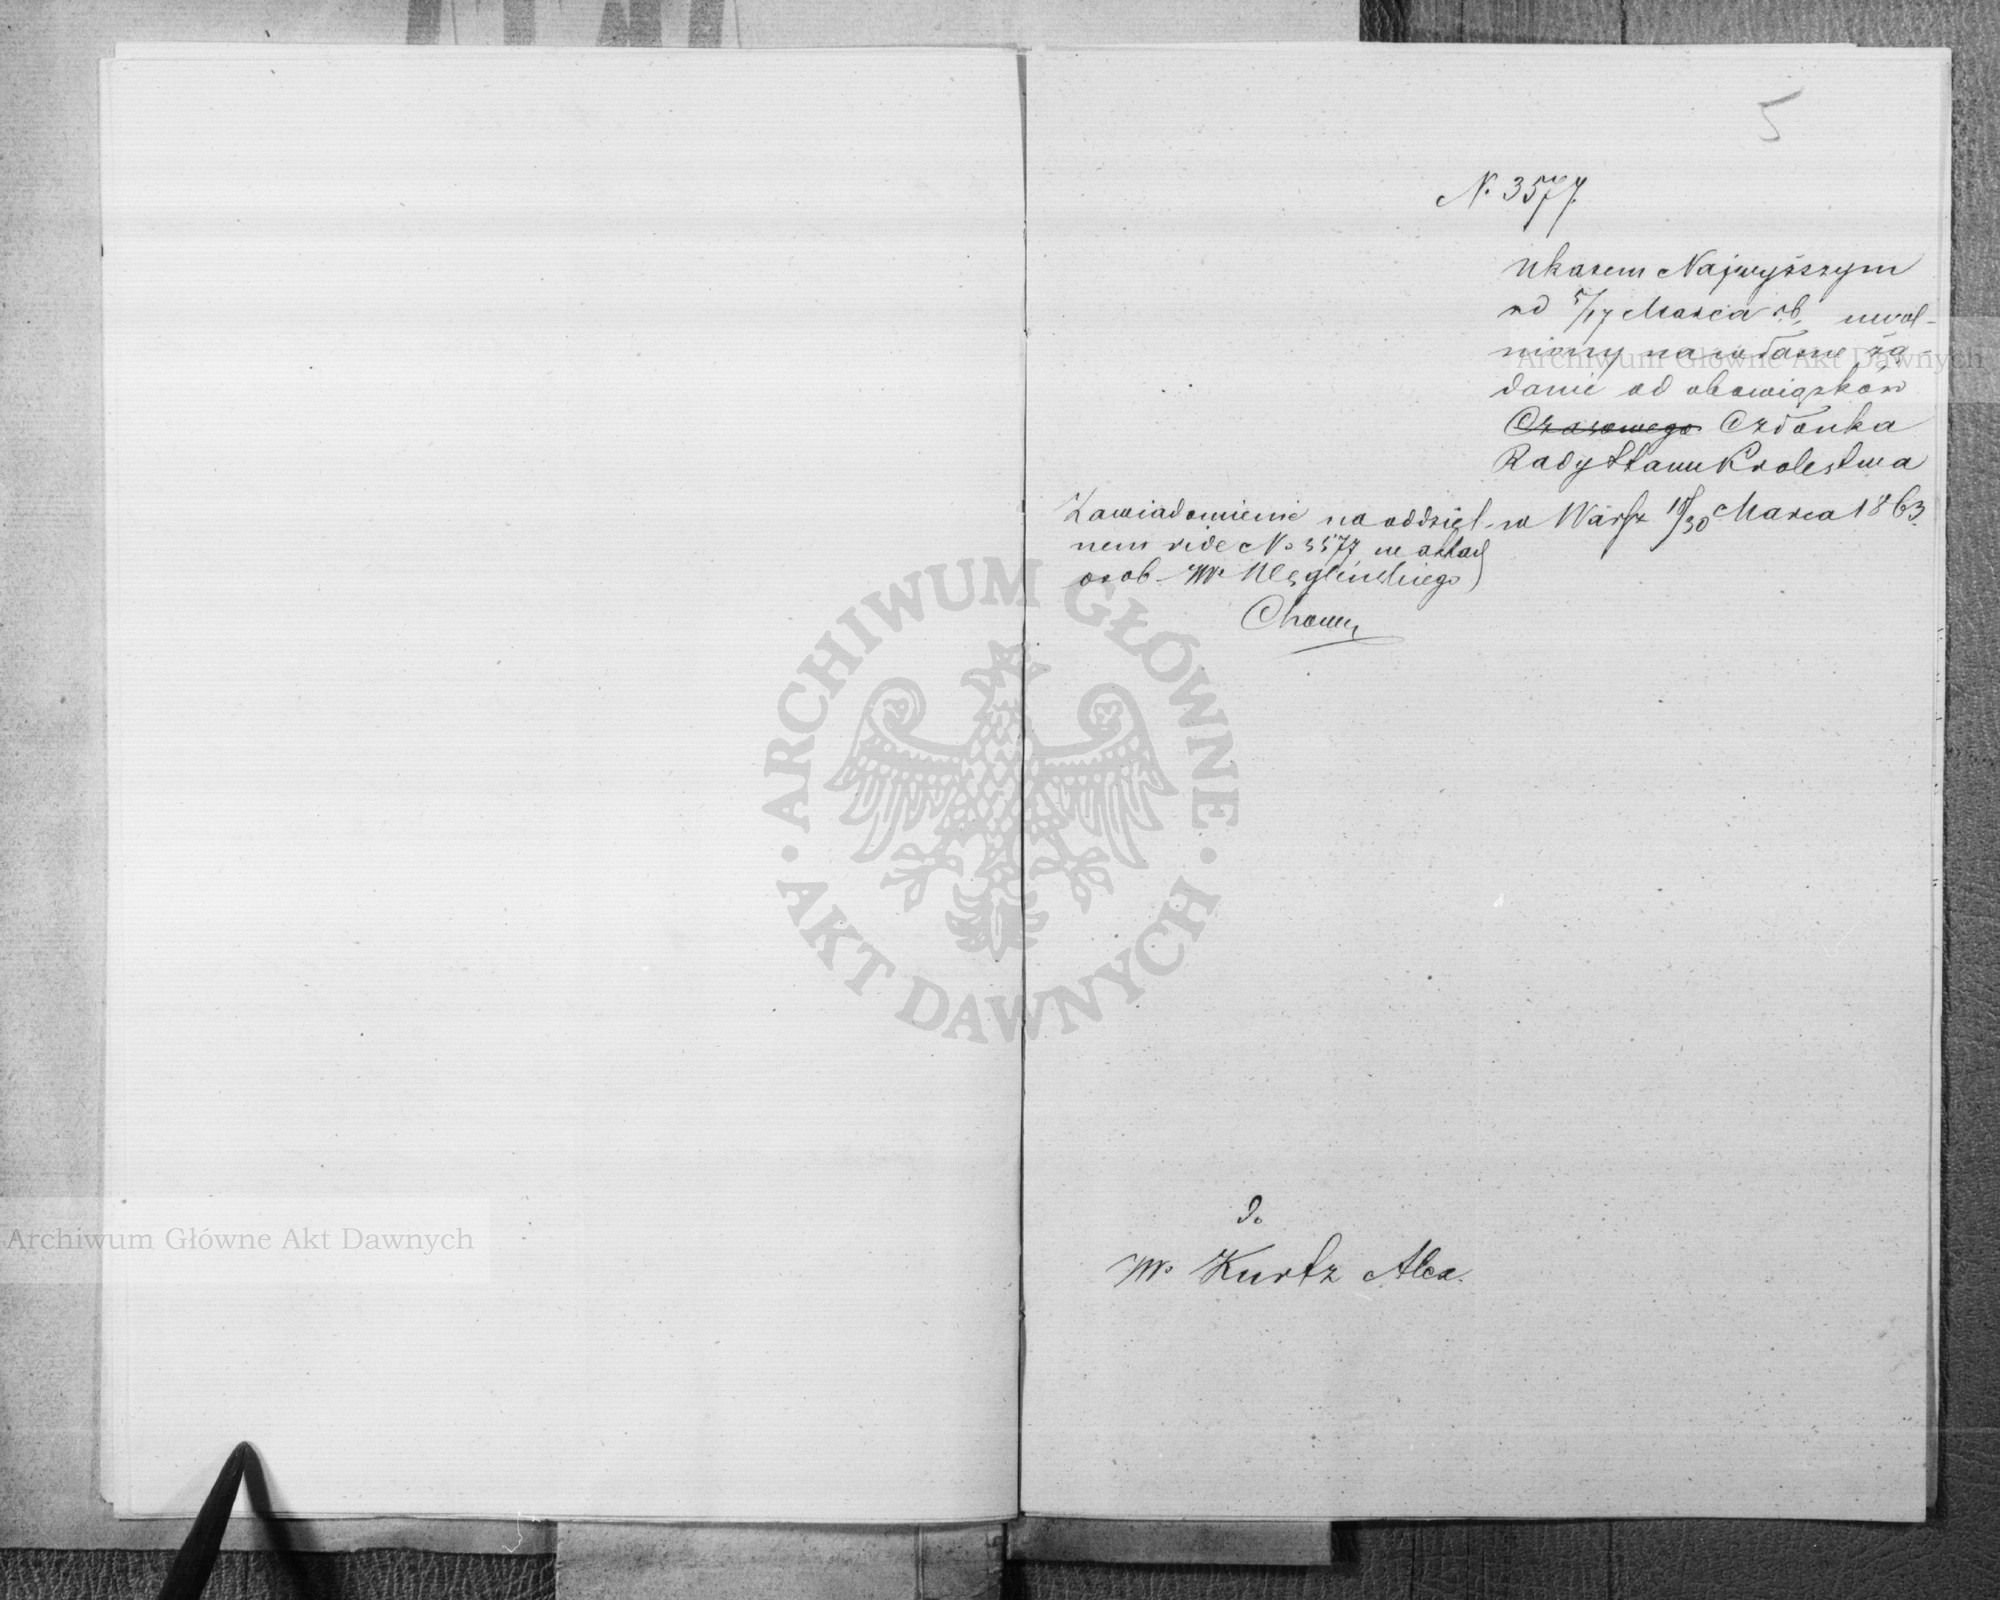 5
N. 3577.
Ukazem Najwyższym
od 5/17 Marca rb, uwol-
niony na własne żą-
danie od obowiązków
Czasowego Członka
Rady Stanu Krolestwa
w Warsz 18/30 Marca 1863
Zawiadomienie na oddziel-
nem vide No 3577 w aktach
osob. W. Węglińskiego
do
W. Kurtz Alex.
ARCHIWUM GŁÓWNE
AKT DAWNYCH
Archiwum Główne Akt Dawnych
Archiwum Główne Akt Dawnych